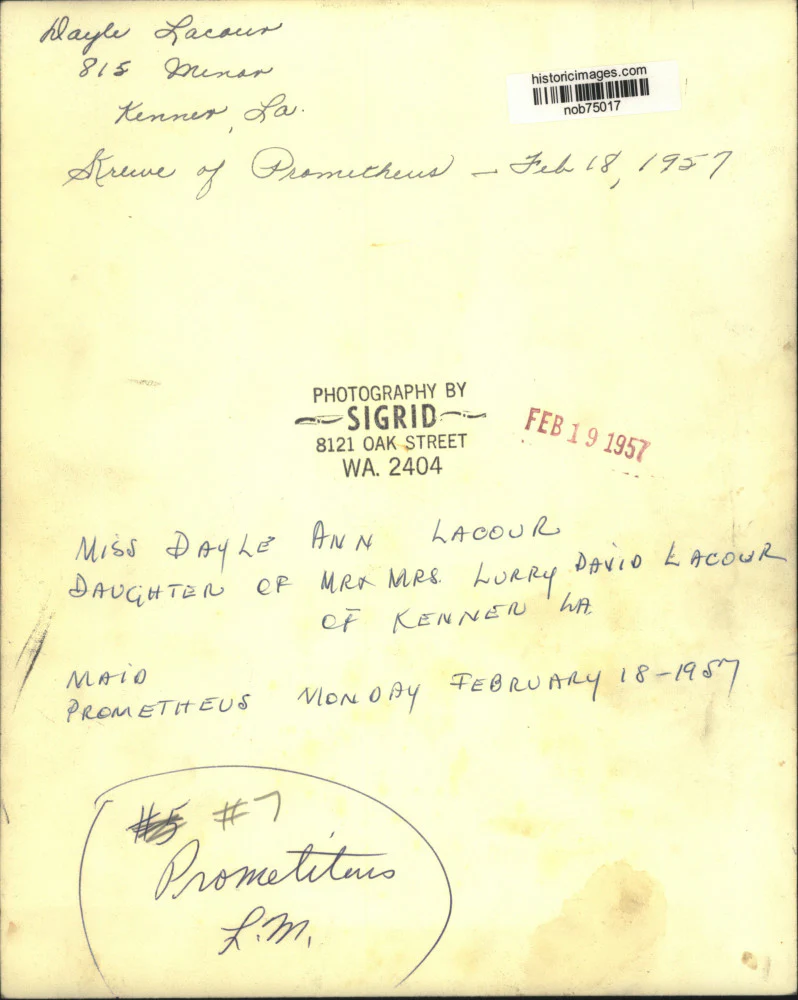 Dayle Lacour
815 Minor
Kenner, La.
Krewe of Prometheus - Feb 18, 1957
historicimages.com
nob75017
PHOTOGRAPHY BY
SIGRID
8121 OAK STREET
WA. 2404
FEB 19 1957
MISS DAYLE ANN LACOUR
DAUGHTER OF MR & MRS. LURRY DAVID LACOUR
OF KENNER LA
MAID
PROMETHEUS MONDAY FEBRUARY 18-1957
#5 #7
Prometheus
L.M.